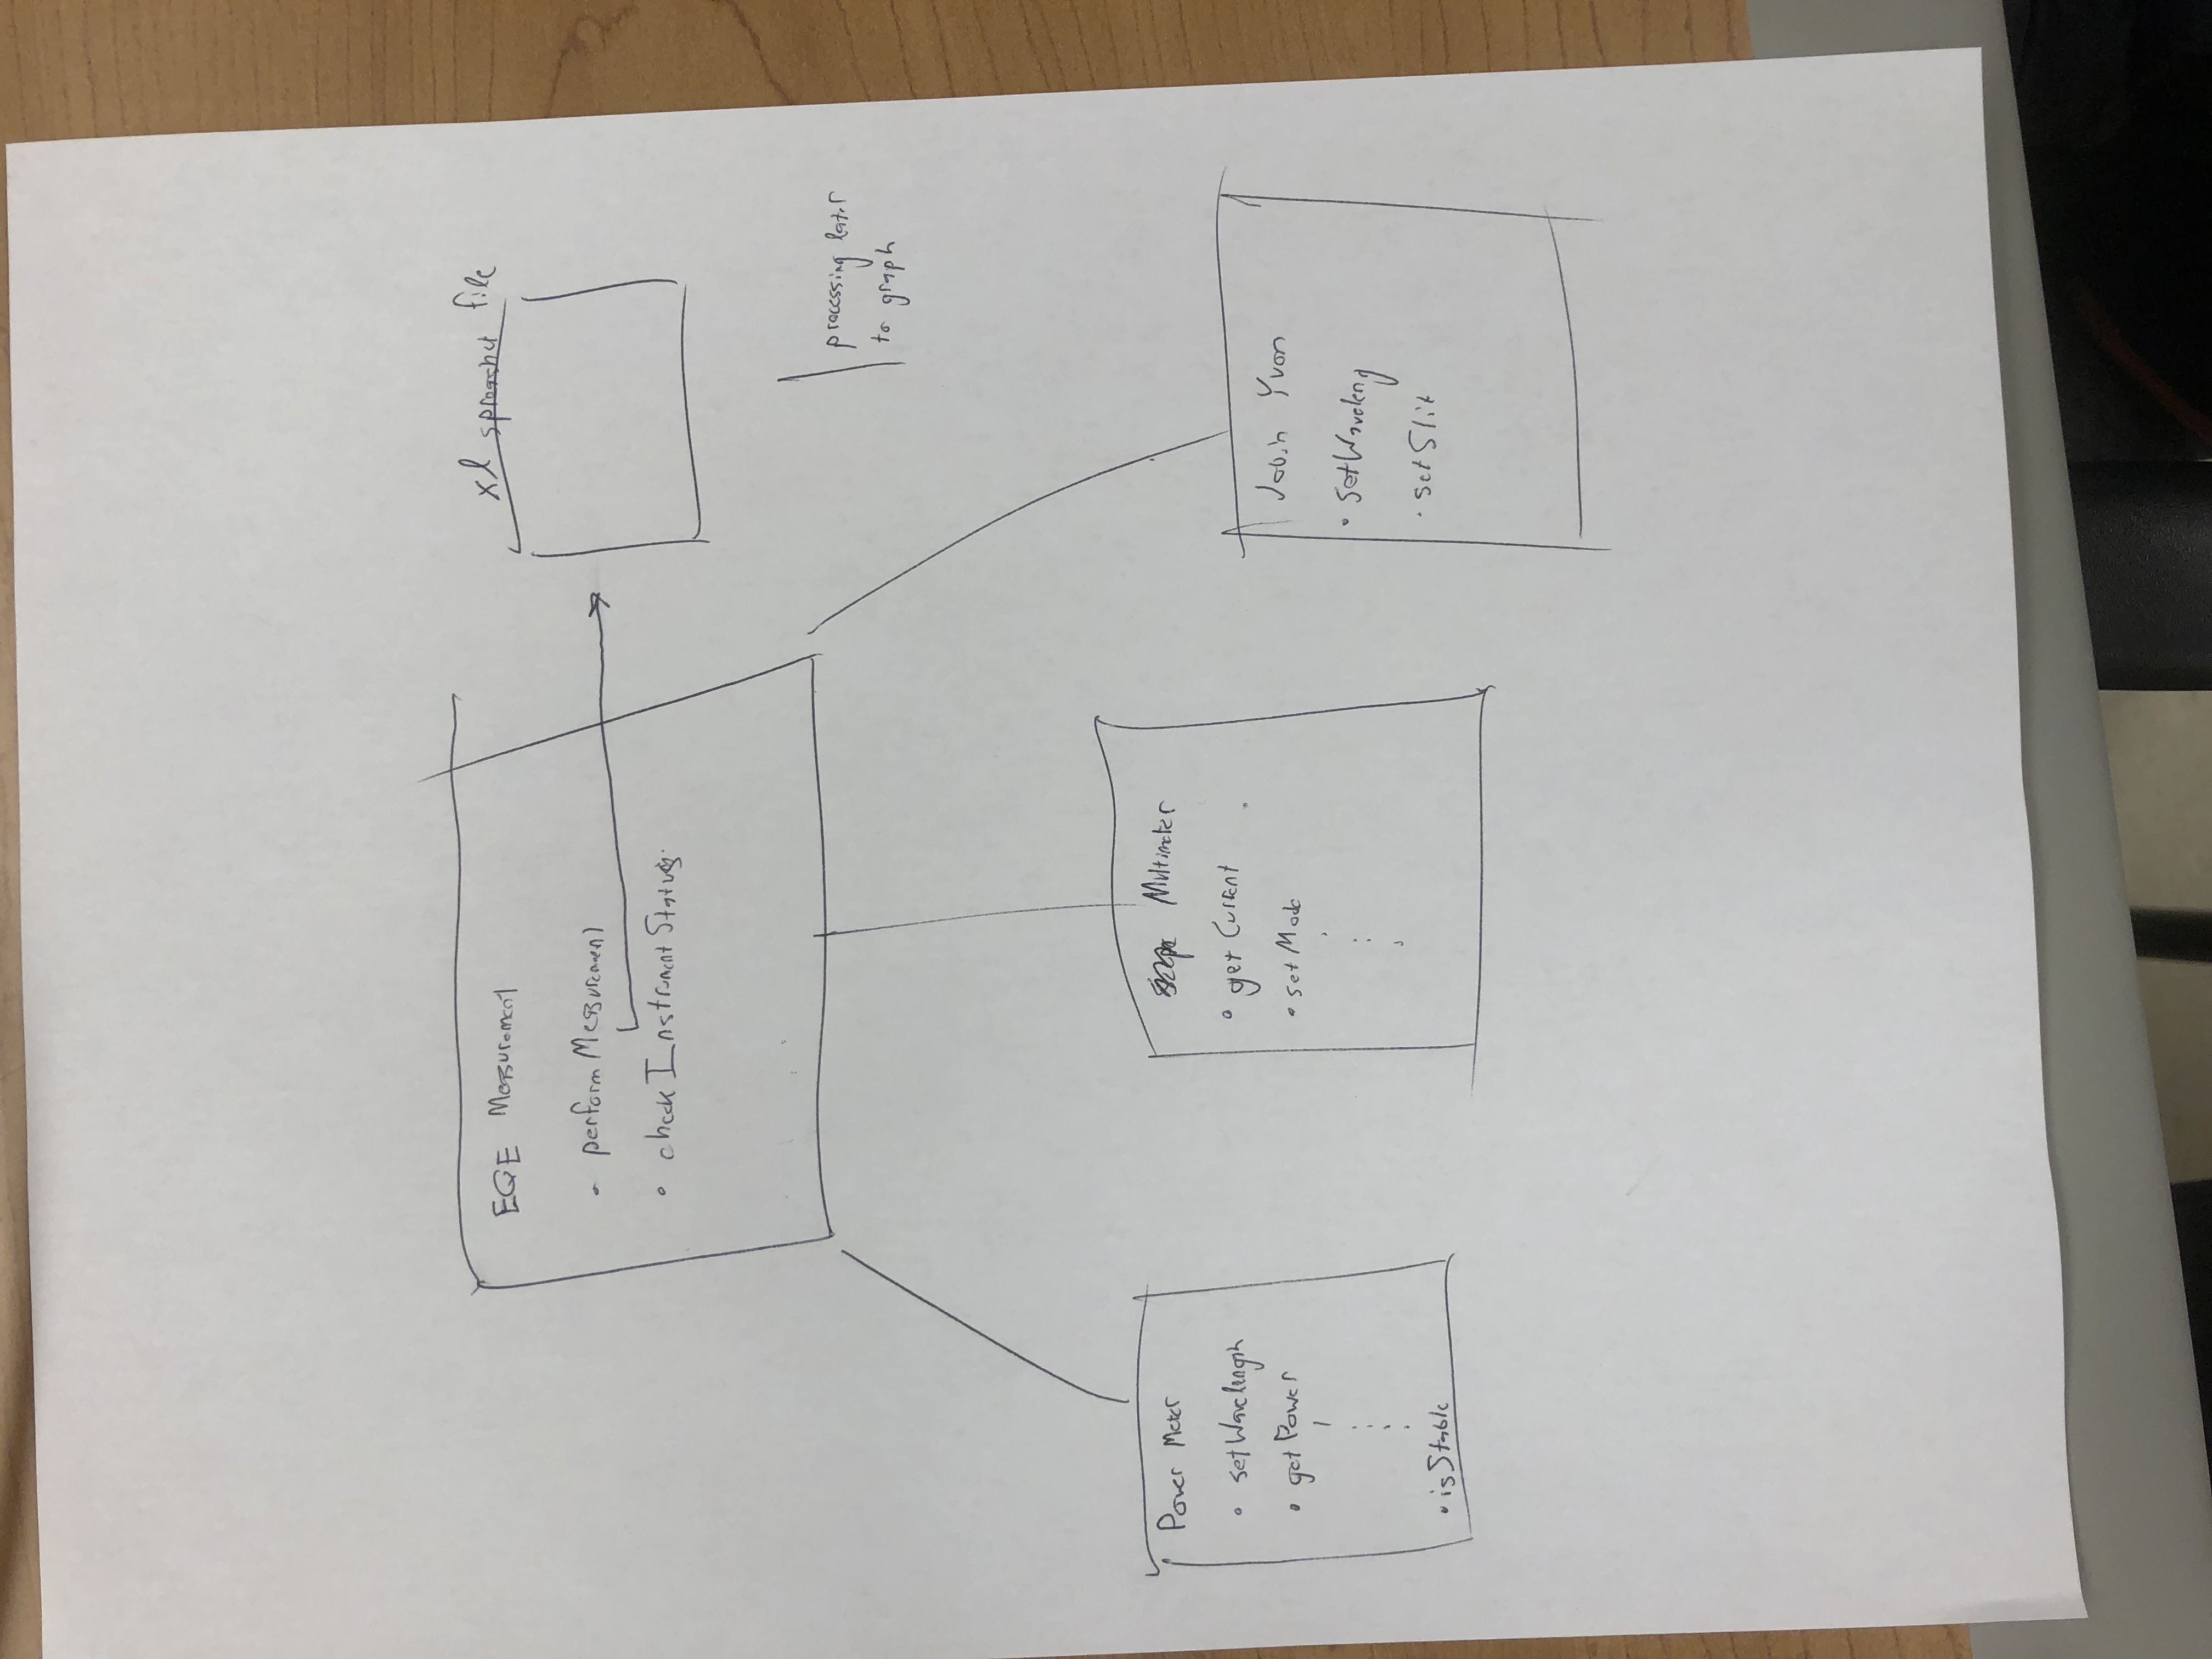 EQE Measurement
• perform Measurement
• check Instrument Status
xl spreashet file
processing later
to graph
Power Meter
• setWavelength
• getPower
• isStable
Multimeter
• getCurrent
• setMode
Jobin Yvon
• setWaveleng
• setSlit